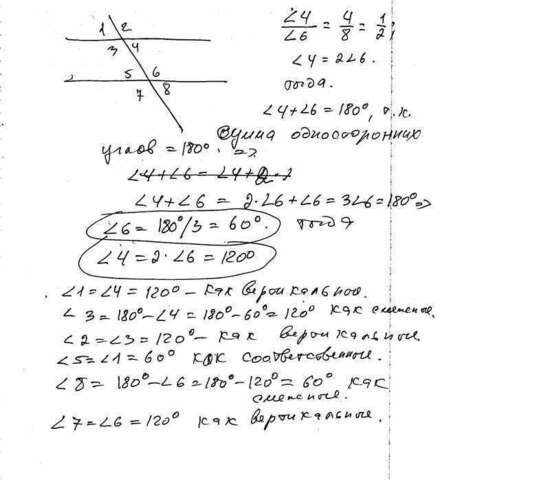 1 2
3 4
5 6
7 8
∠4/∠6 = 4/8 = 1/2;
∠4 = 2∠6.
тогда.
∠4+∠6 = 180°, т.к.
сумма односторонних
углов = 180°. =>
∠4+∠6 = ∠4+2·
∠4+∠6 = 2·∠6+∠6 = 3∠6 = 180° =>
∠6 = 180°/3 = 60°. тогда
∠4 = 2·∠6 = 120°
∠1 = ∠4 = 120° – как вертикальные.
∠3 = 180° – ∠4 = 180° – 60° = 120° как смежные.
∠2 = ∠3 = 120° – как вертикальные.
∠5 = ∠1 = 60° как соответсвенные.
∠8 = 180° – ∠6 = 180° – 120° = 60° как
смежные.
∠7 = ∠6 = 120° как вертикальные.